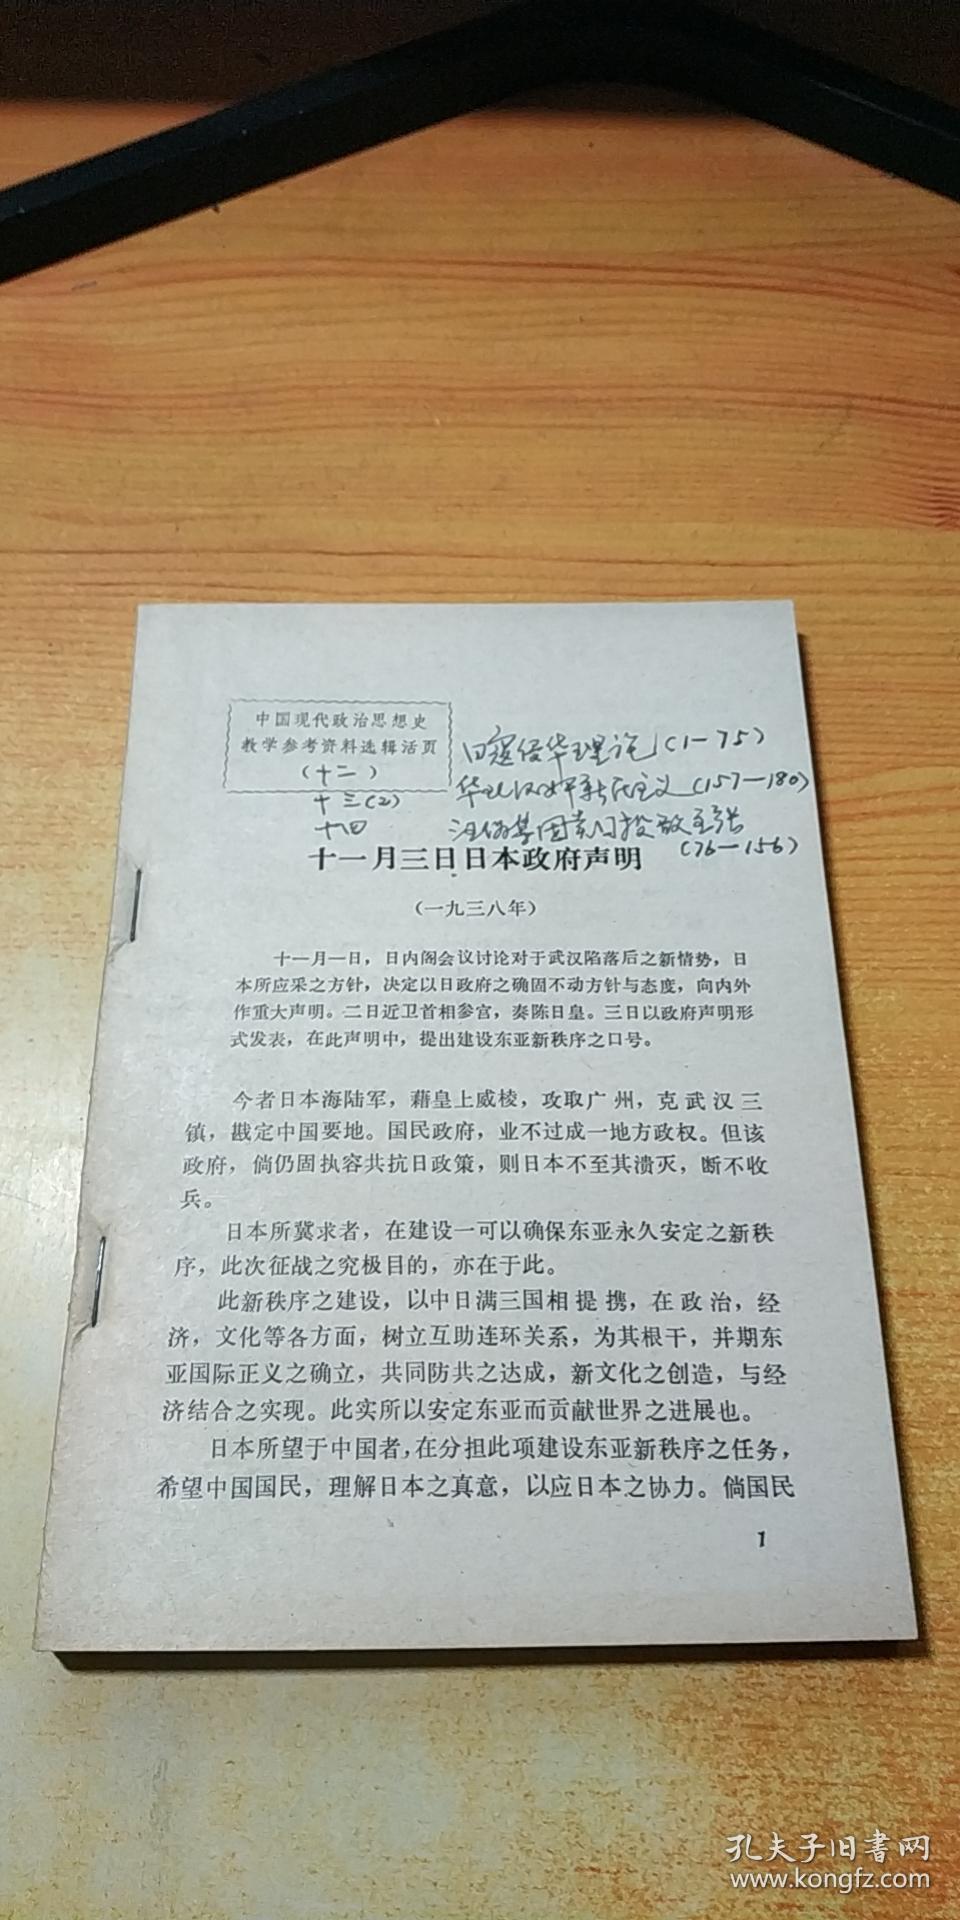 中国现代政治思想史
教学参考资料选辑活页
(十二)
十三(2)
十四
日寇侵华理论(1—75)
华北汉奸新民主义(157—180)
汪伪集团卖国投敌主张
(76—156)
十一月三日日本政府声明
(一九三八年)
十一月一日，日内阁会议讨论对于武汉陷落后之新情势，日
本所应采之方针，决定以日政府之确固不动方针与态度，向内外
作重大声明。二日近卫首相参宫，奏陈日皇。三日以政府声明形
式发表，在此声明中，提出建设东亚新秩序之口号。
今者日本海陆军，藉皇上威棱，攻取广州，克武汉三
镇，戡定中国要地。国民政府，业不过成一地方政权。但该
政府，倘仍固执容共抗日政策，则日本不至其溃灭，断不收
兵。
日本所冀求者，在建设一可以确保东亚永久安定之新秩
序，此次征战之究极目的，亦在于此。
此新秩序之建设，以中日满三国相提携，在政治，经
济，文化等各方面，树立互助连环关系，为其根干，并期东
亚国际正义之确立，共同防共之达成，新文化之创造，与经
济结合之实现。此实所以安定东亚而贡献世界之进展也。
日本所望于中国者，在分担此项建设东亚新秩序之任务，
希望中国国民，理解日本之真意，以应日本之协力。倘国民
1
孔夫子旧书网
www.kongfz.com